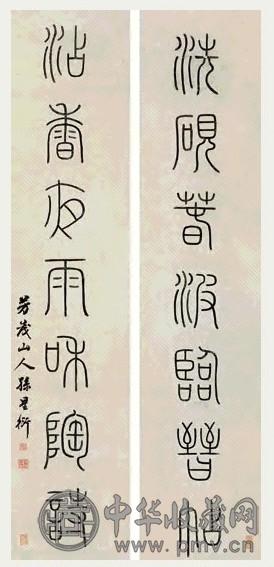 洗硯春波臨晉帖
沾香夜雨和陶詩
芳茂山人孫星衍
中华收藏网
www.pmv.cn